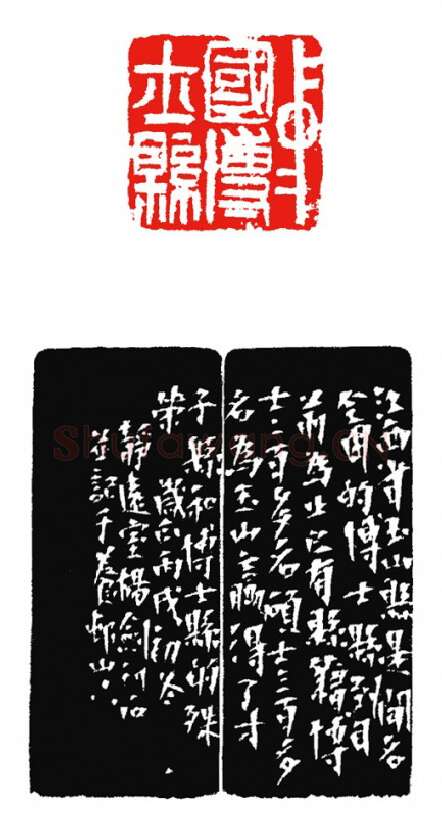 中
國博
士縣
江西省玉山縣是聞名
全國的博士縣到目
前為止已有縣籍博
士二百多名碩士三百多
名為玉山贏得了才
子縣和博士縣的殊
榮 歲在丙戌初冬
靜遠室楊劍
並記于邨山
Shufawang.cn